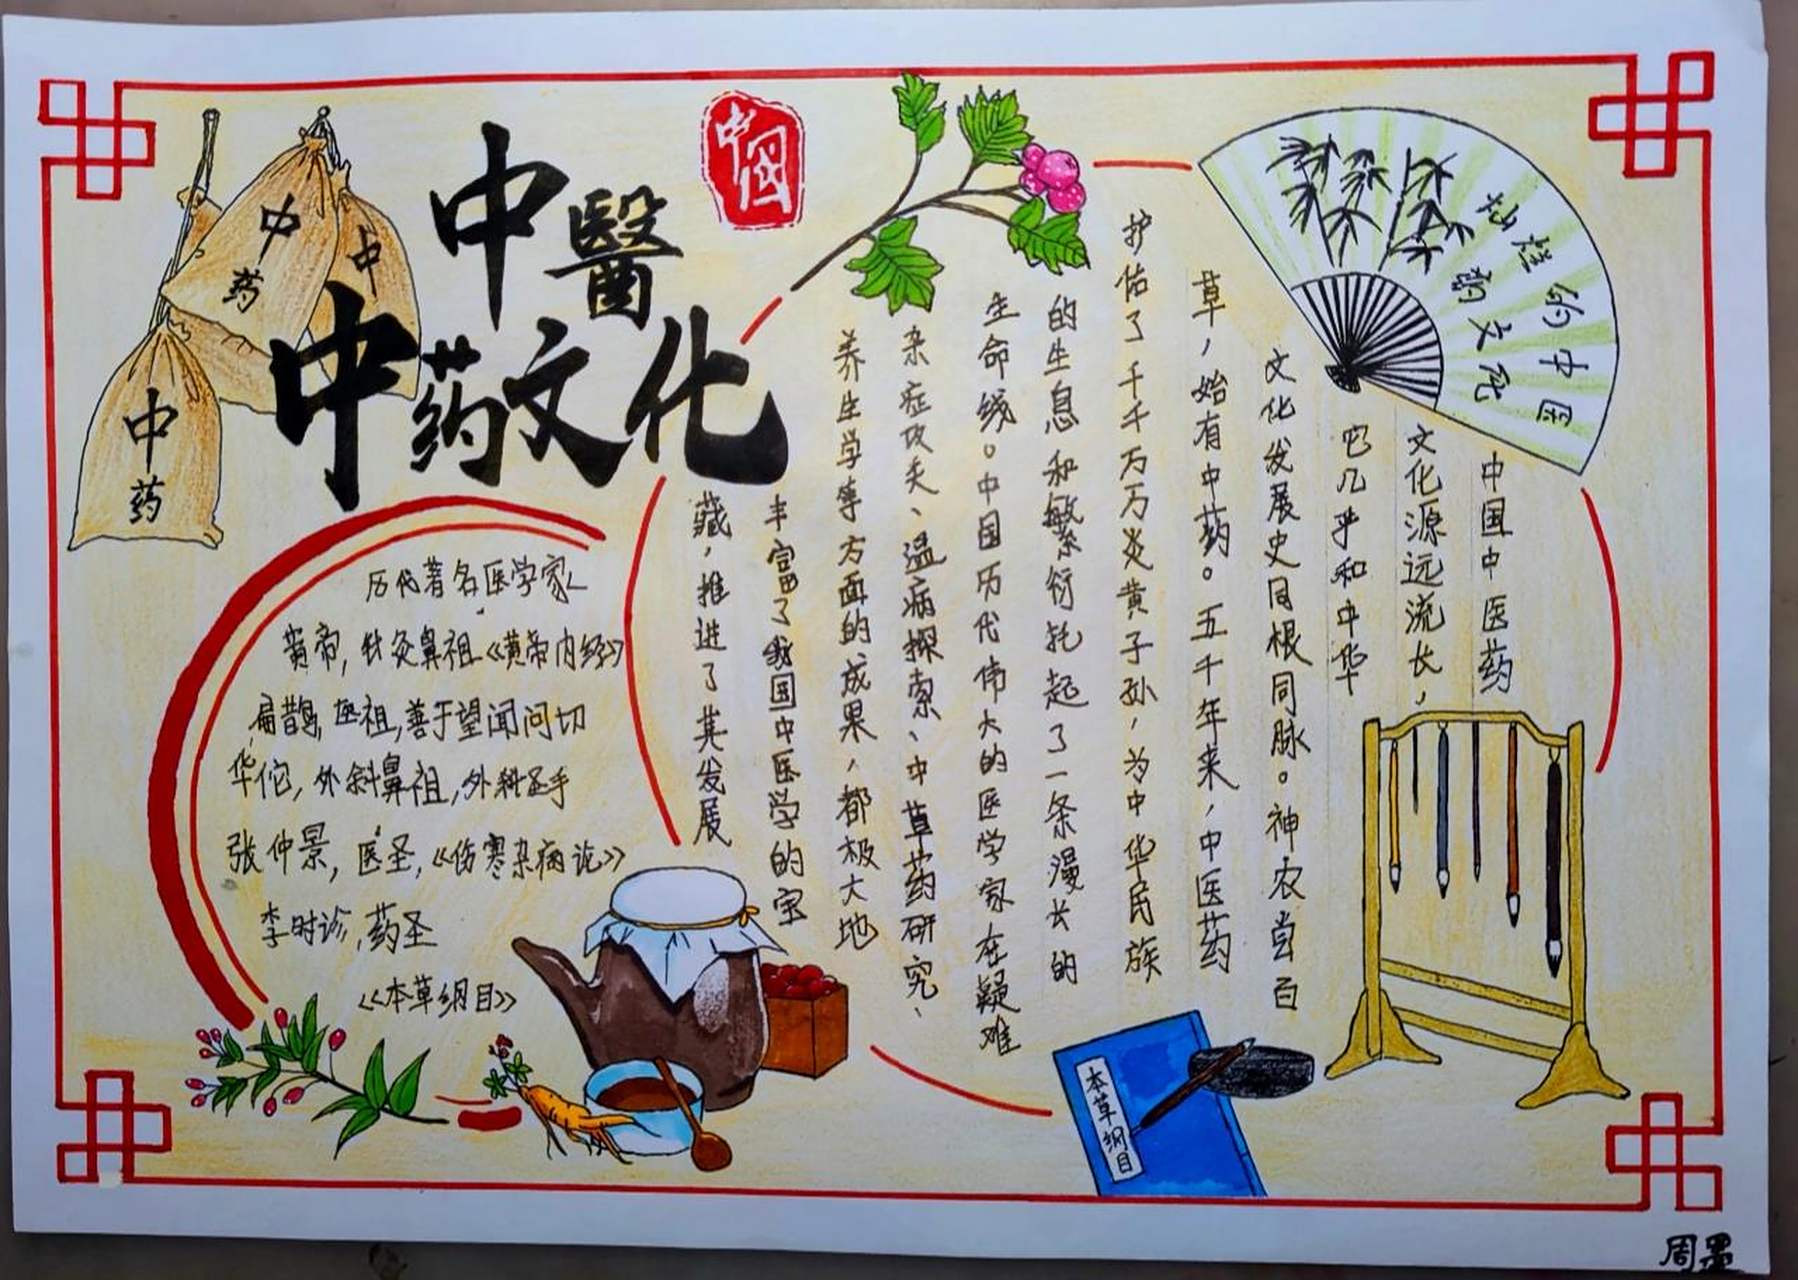 中醫
中药文化
中国
中药
中
中药
灿烂的中医
药文化
中国中医药
文化源远流长，
它几乎和中华
文化发展史同根同脉。神农尝百
草，始有中药。五千年来，中医药
护佑了千千万万炎黄子孙，为中华民族
的生息和繁衍托起了一条漫长的
生命线。中国历代伟大的医学家在疑难
杂症攻关、温病探索、中草药研究、
养生学等方面的成果，都极大地
丰富了我国中医学的宝
藏，推进了其发展
历代著名医学家
黄帝，针灸鼻祖《黄帝内经》
扁鹊，医祖，善于望闻问切
华佗，外科鼻祖，外科圣手
张仲景，医圣，《伤寒杂病论》
李时珍，药圣
《本草纲目》
本草纲目
周